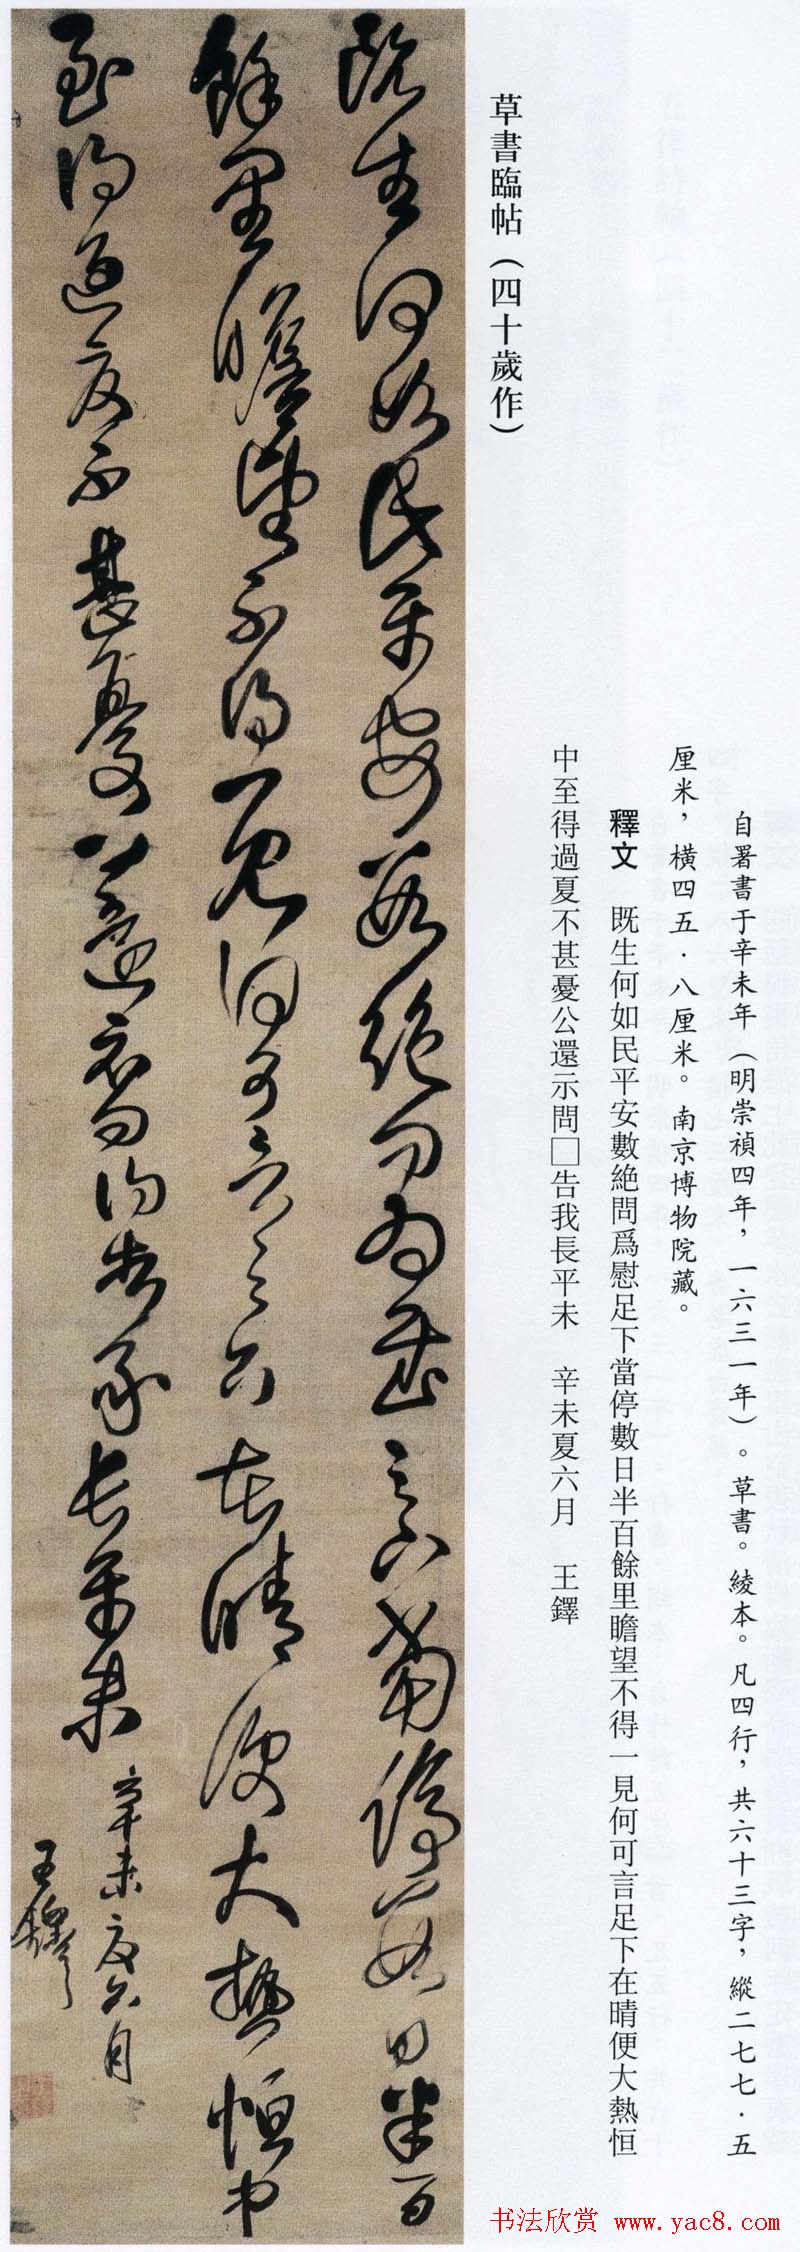 草書臨帖（四十歲作）
自署書于辛未年（明崇禎四年，一六三一年）。草書。綾本。凡四行，共六十三字，縱二七七·五
厘米，橫四五·八厘米。南京博物院藏。
釋文 既生何如民平安數絶問爲慰足下當停數日半百餘里瞻望不得一見何可言足下在晴便大熱恒
中至得過夏不甚憂公還示問□告我長平未 辛未夏六月 王鐸
既生何如民平安數絶問爲慰足下當停數日半百
餘里瞻望不得一見何可言足下在晴便大熱恒中
至得過夏不甚憂公還示問告我長平未 辛未夏六月
王鐸
书法欣赏 www.yac8.com